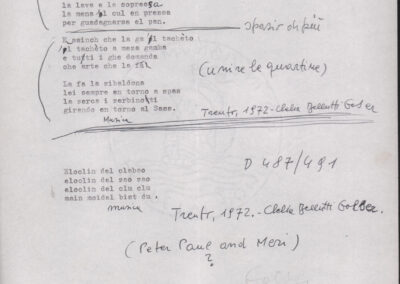 la leva a la sopressa
la mena 'l cul en pressa
per guadagnarse el pan.
spazio di più
E smissiö che la ga 'l tachèto
'l tachèto a meza gamba
e tutti i ghe domanda
che arte che la fa
(unire le quartine)
La fa la sibaldona
lei sempre en torno a spas
la serca i zerbinotti
girando en torno al Sass.
Musica
Trento, 1972 - Clelia Bellutti Golser
D 487/491
Eloclin del clebec
eloclin del vao vao
eloclin del clu clu
main moidel bist du.
musica
Trento, 1972. - Clelia Bellutti Golser.
(Peter Paul and Meri)
?